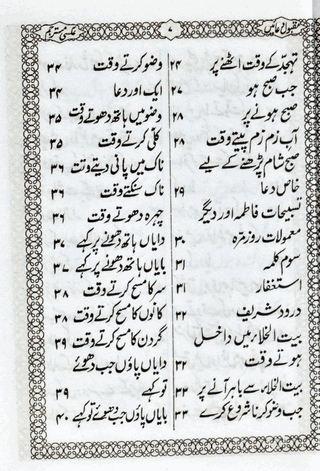 مقبول دعائیں
۷
عکسی مترجم
تہجد کے وقت اٹھنے پر ۲۴
جب صبح ہو ۲۷
صبح ہونے پر ۲۸
آب زم زم پیتے وقت ۲۸
صبح شام پڑھنے کے لیے
خاص دعا ۲۹
تسبیحات فاطمہ اور دیگر
معمولات روزمرہ ۳۰
سوم کلمہ ۳۱
استغفار ۳۱
درود شریف ۳۲
بیت الخلاء میں داخل
ہوتے وقت ۳۲
بیت الخلاء سے باہر آنے پر ۳۳
جب وضو کرنا شروع کرے ۳۳
وضو کرتے وقت ۳۴
ایک اور دعا ۳۴
وضو میں ہاتھ دھوتے وقت ۳۵
کلی کرتے وقت ۳۵
ناک میں پانی دیتے وقت ۳۶
ناک سنکتے وقت ۳۶
چہرہ دھوتے وقت ۳۶
دایاں ہاتھ دھونے پر کہے ۳۷
بایاں ہاتھ دھونے پر کہے ۳۷
سر کا مسح کرتے وقت ۳۸
کانوں کا مسح کرتے وقت ۳۸
گردن کا مسح کرتے وقت ۳۹
دایاں پاؤں جب دھوئے
تو کہے ۳۹
بایاں پاؤں جب دھوئے تو کہے ۴۰